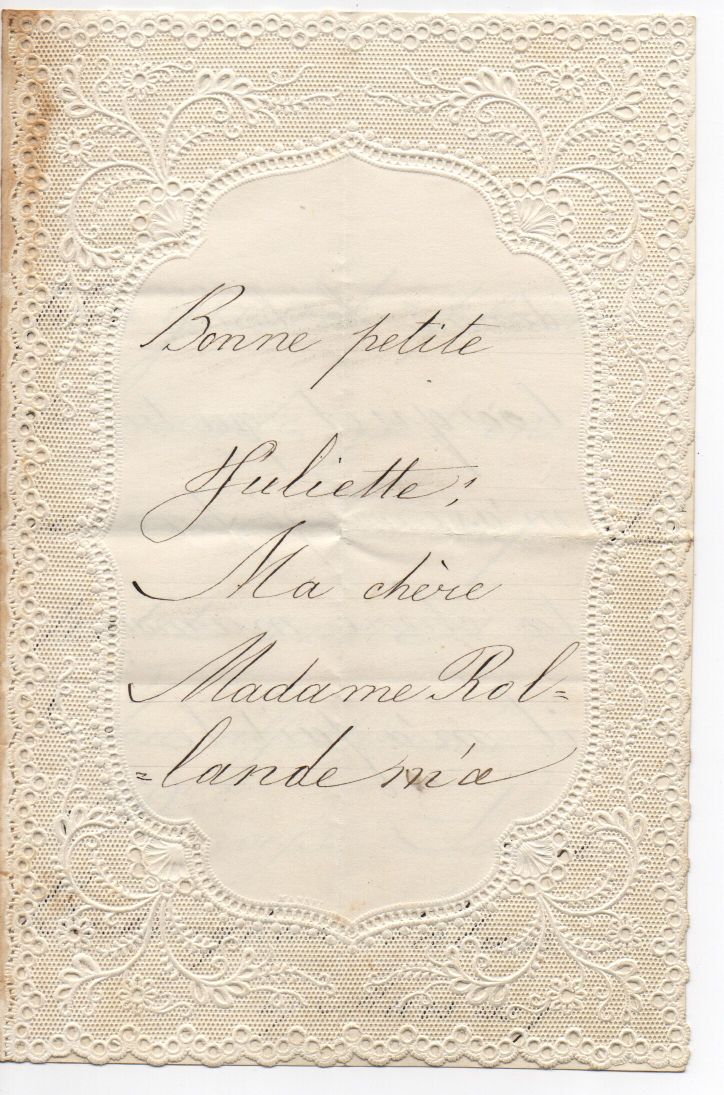 Bonne petite
Juliette;
Ma chère
Madame Rol=
=lande m'a